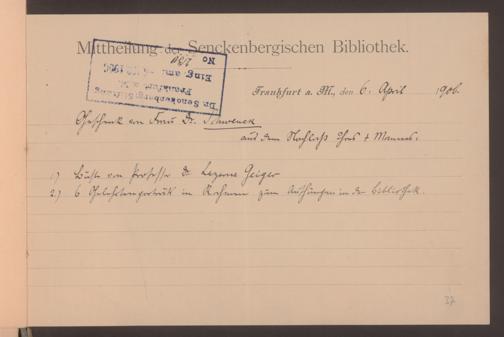 Mittheilung der Senckenbergischen Bibliothek.
Dr. Senckenberg. Stiftung
Frankfurt a. M.
Eing. am:
No
Frankfurt a. M., den 6. April 1906.
Geschenk von Frau Dr.
aus dem Nachlaß ihres † Mannes:
1) Büste von Professor Dr. Lazarus Geiger
2) 6 Gelehrtenporträts in Rahmen zum Aufhängen in der Bibliothek.
37